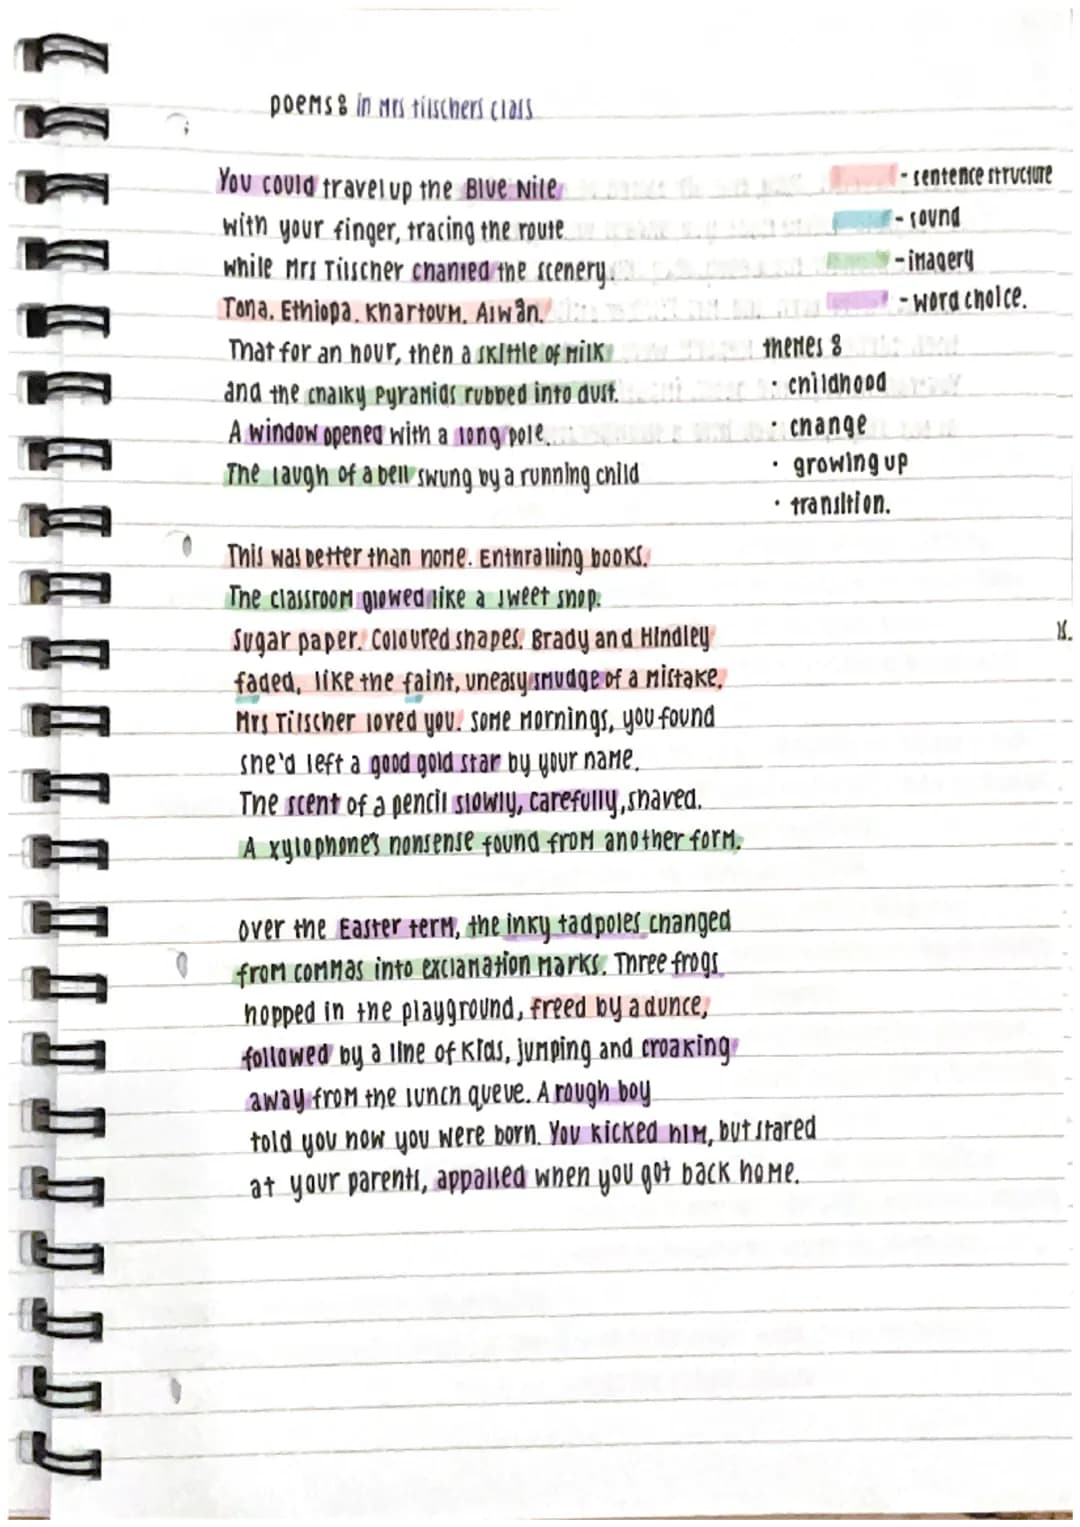 poems: in Mrs tilschers class
You could travel up the Blue Nile
with your finger, tracing the route
while Mrs Tilscher chanted the scenery.
Tana. Ethiopa. Khartoum. Aswân.
That for an hour, then a skittle of milk
and the chalky pyramids rubbed into dust.
A window opened with a long pole.
The laugh of a bell swung by a running child
- sentence structure
- sound
- imagery
- word choice.
themes:
· childhood
· change
· growing up
· transition.
This was better than home. Enthralling books.
The classroom glowed like a sweet shop.
Sugar paper. Coloured shapes. Brady and Hindley
faded, like the faint, uneasy smudge of a mistake.
Mrs Tilscher loved you. Some mornings, you found
she'd left a good gold star by your name.
The scent of a pencil slowly, carefully, shaved.
A xylophone's nonsense found from another form.
over the Easter term, the inky tadpoles changed
from commas into exclamation marks. Three frogs
hopped in the playground, freed by a dunce,
followed by a line of kids, jumping and croaking
away from the lunch queue. A rough boy
told you how you were born. You kicked him, but stared
at your parents, appalled when you got back home.